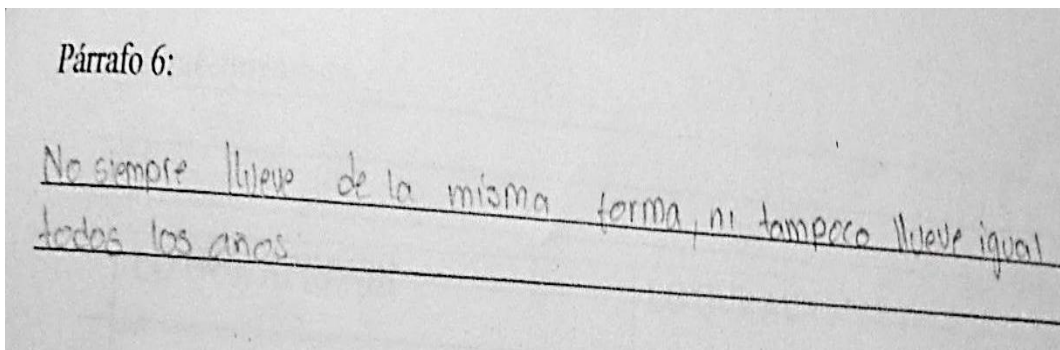 Párrafo 6:
No siempre llueve de la misma forma, ni tampoco llueve igual
todos los años